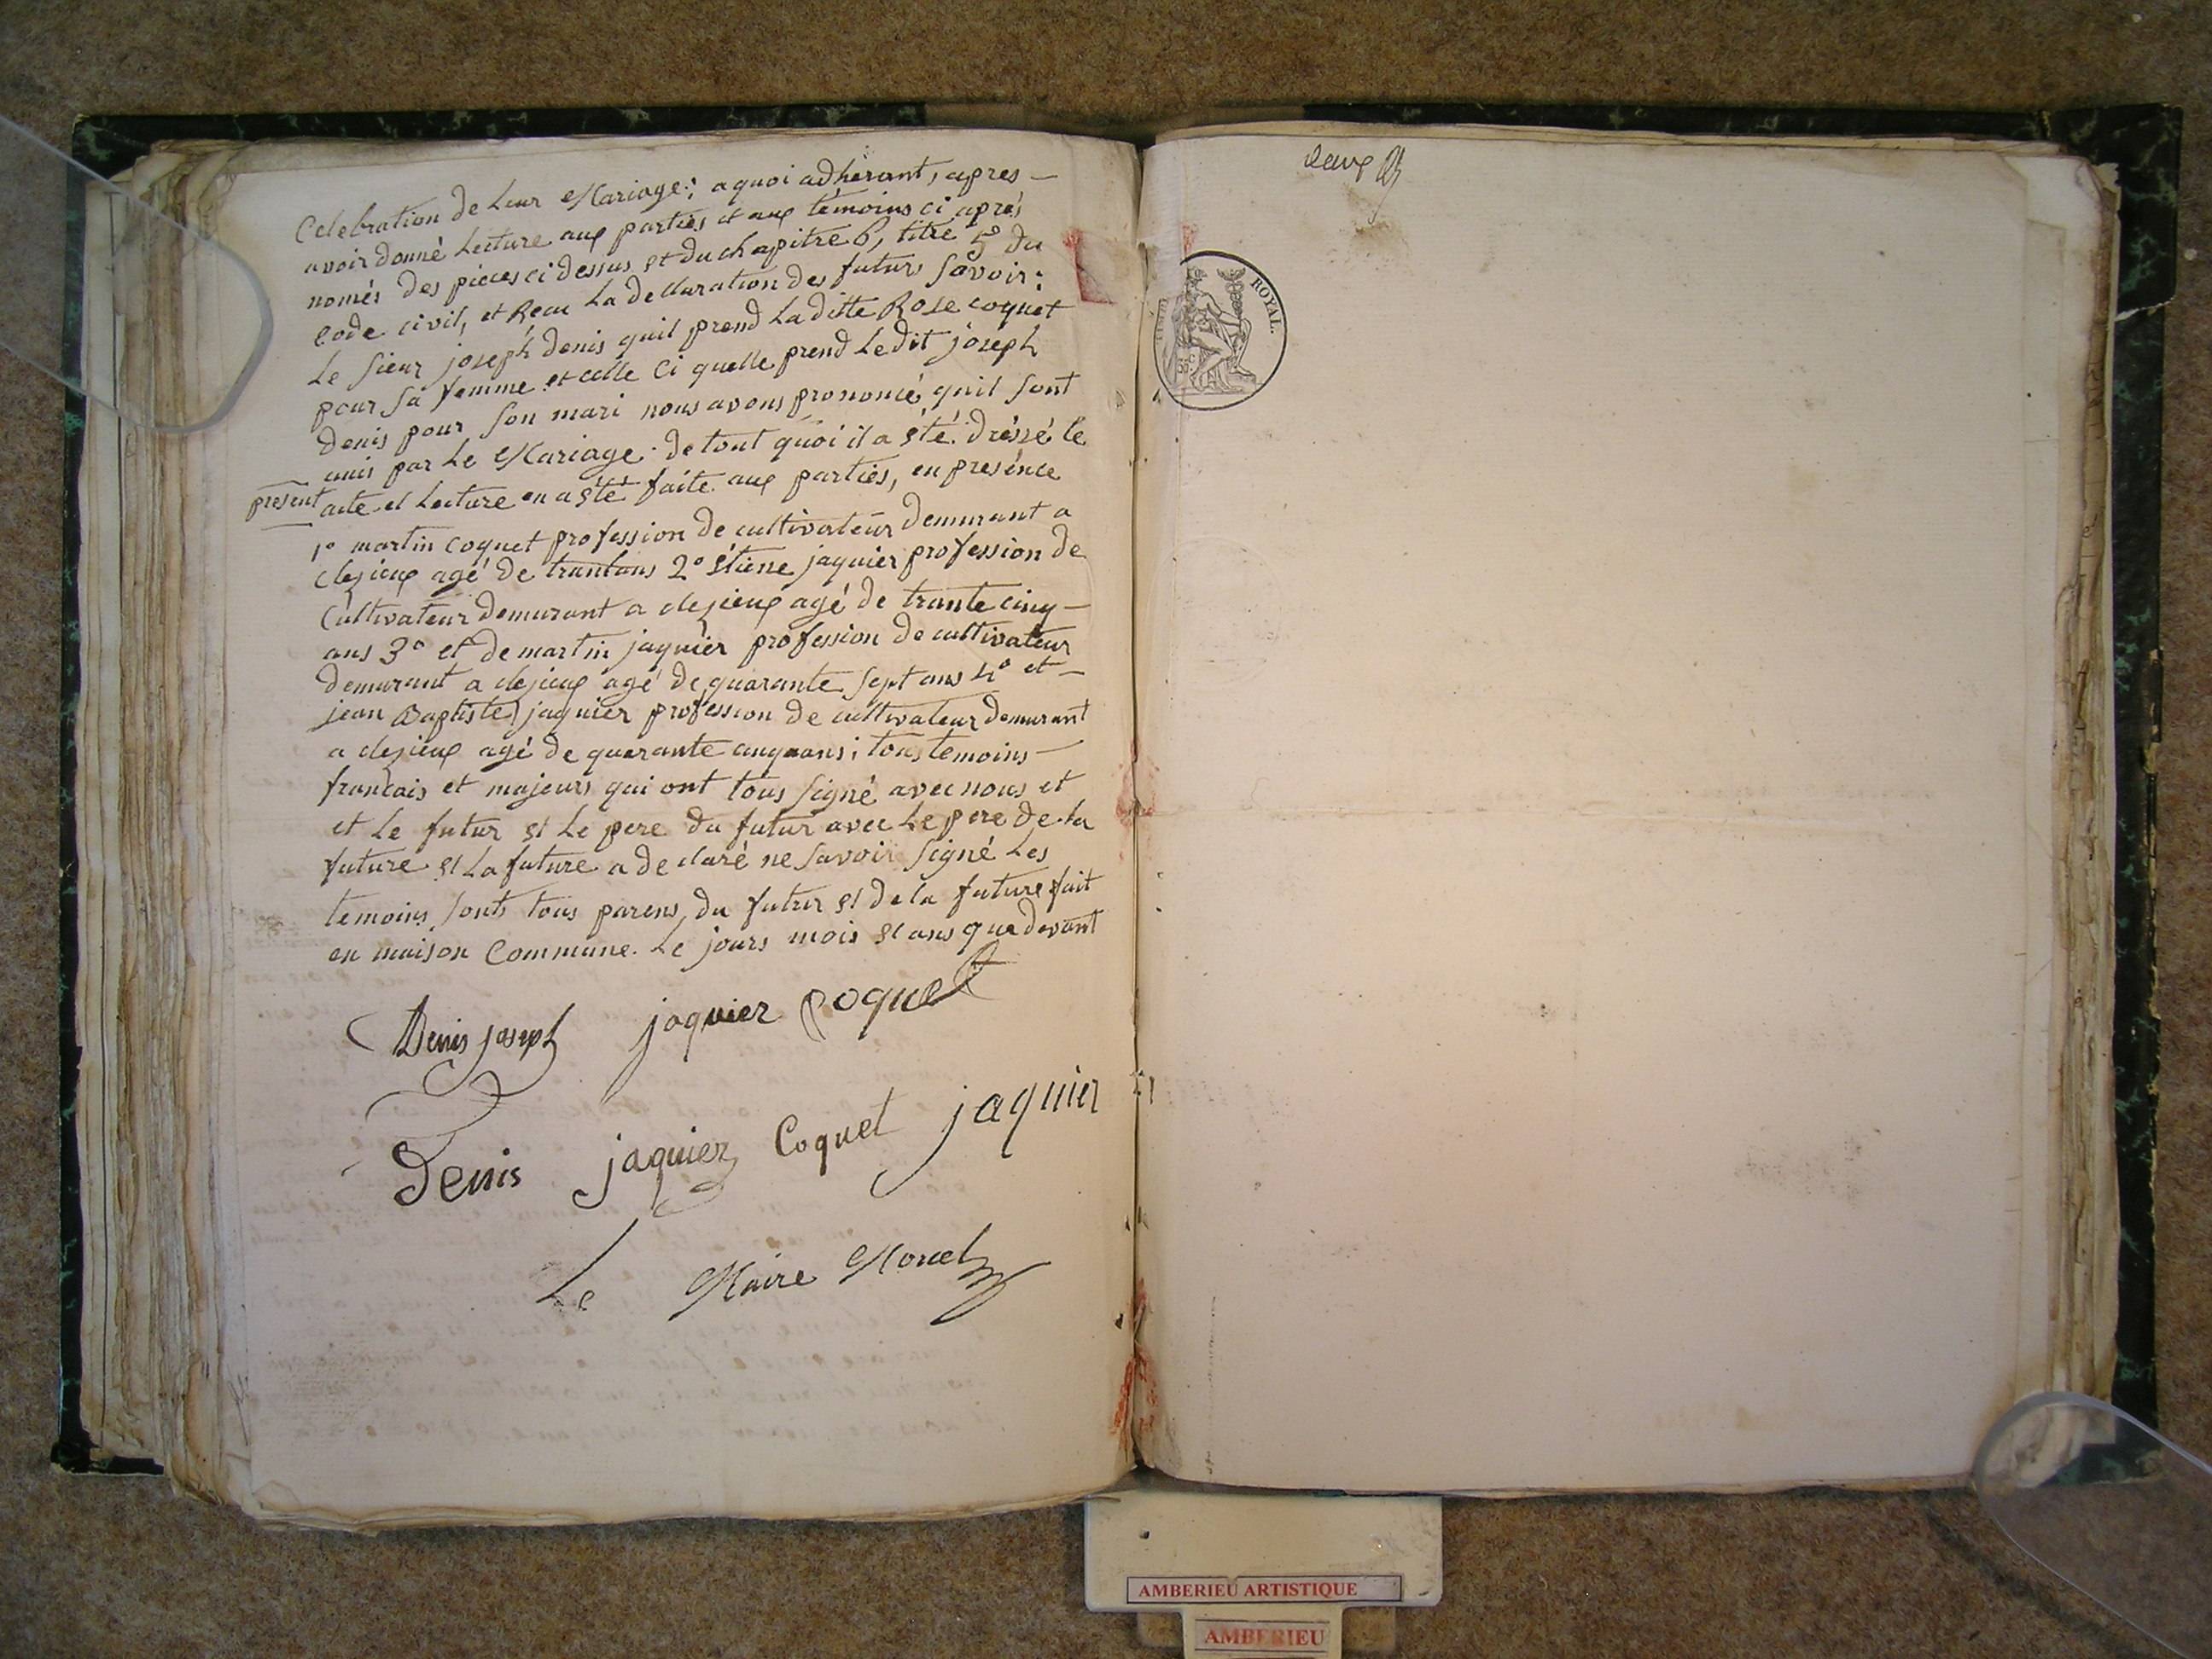 Celebration de Leur Mariage; a quoi adhérant, apres —
avoir donné Lecture aux parties et aux témoins ci aprés
només des pieces ci dessus et du chapitre 6, titre 5e du
Code civil, et Recu La declaration des futurs Savoir:
Le Sieur joseph denis quil prend La ditte Rose coquet
pour Sa femme et celle Ci quelle prend Le dit joseph
denis pour Son mari nous avons prononcé quil Sont
unis par Le Mariage. de tout quoi il a été dréssé le
present acte et Lecture en a été faite aux parties, en presénce
1° martin coquet profession de cultivateur demurant a
clezieux agé de trantans 2° étiene jaquier profession de
Cultivateur demurant a clezieux agé de trante cinq —
ans 3° et de martin jaquier profession de cultivateur
demurant a clezieux agé de quarante Sept ans 4° et —
jean Baptiste jaquier profession de cultivateur demurant
a clezieux agé de quarante cinquans; tous temoins —
francais et majeurs qui ont tous Signé avec nous et
et Le futur et Le pere du futur avec Le pere de La
future et La future a declaré ne Savoir Signé Les
temoins Sonts tous parens, du futur et de la future fait
en maison Commune. Le jours mois et ans que devant
Denis joseph jaquier coquet
Denis jaquier Coquet jaquier
Le Maire Morel
ROYAL.
AMBERIEU ARTISTIQUE
AMBERIEU